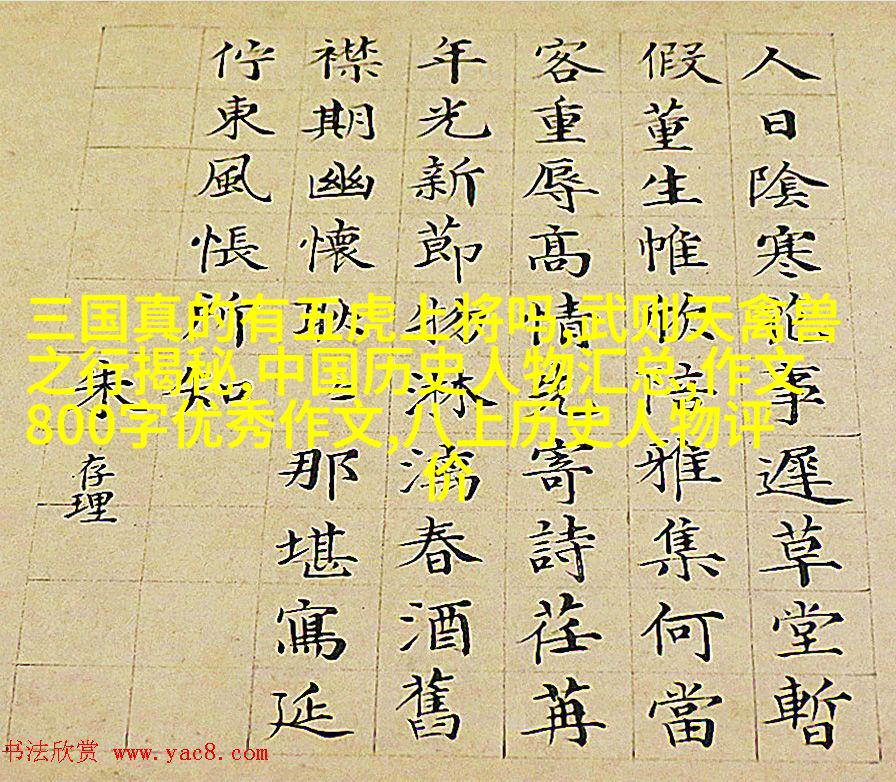 人日陰寒花事遲草堂暫
假董生帷欣陪雅集何當
客重辱高情寄詩荏苒
年光新節物淋漓春酒舊
襟期幽懷耿那堪寫延
佇東風悵所知
存理
三国真的有五虎上将吗,武则天禽兽
之行揭秘,中国历史人物汇总,作文
800字优秀作文,八上历史人物评
价
书法欣赏 www.yac8.com